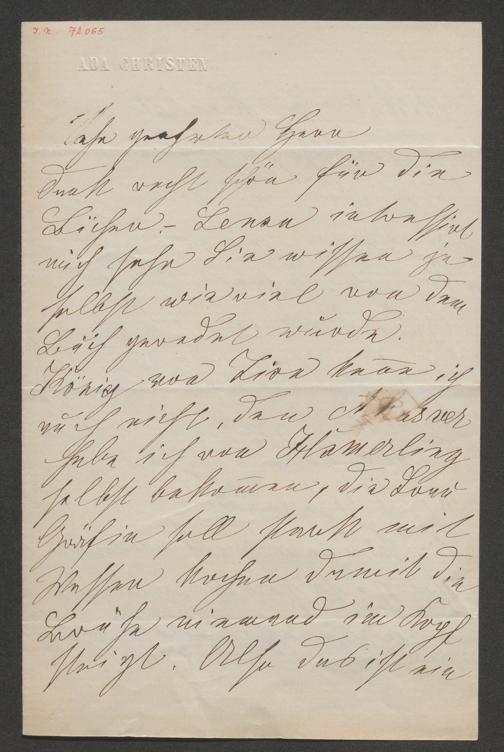 J.N. 72065
ADA CHRISTEN
Sehr geehrter Herr
Dank recht schön für die
Bücher. – Lenau intressirt
mich sehr Sie wissen ja
selbst wie viel von dem
Buch geredet wurde.
König von Sion kenne ich
auch nicht, den Ahasver
habe ich von Hamerling
selbst bekommen, die
Gräfin soll stark mit
Wasser kochen damit die
Brühe niemand im Kopf
steigt. Also das ist ein